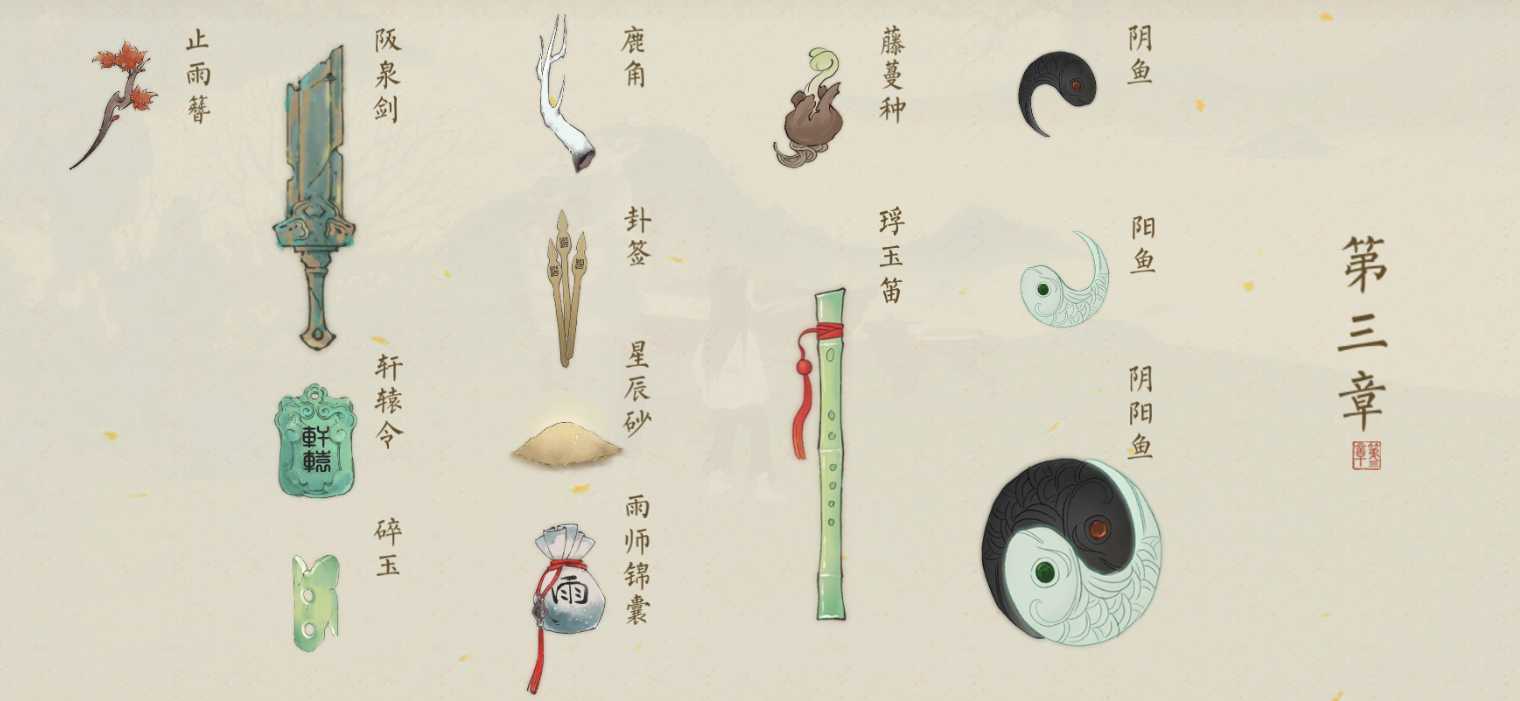 第三章
第三章
阴鱼
阳鱼
阴阳鱼
藤蔓种
琈玉笛
鹿角
卦签
星辰砂
雨师锦囊
雨
阪泉剑
轩辕令
軒轅
碎玉
止雨簪